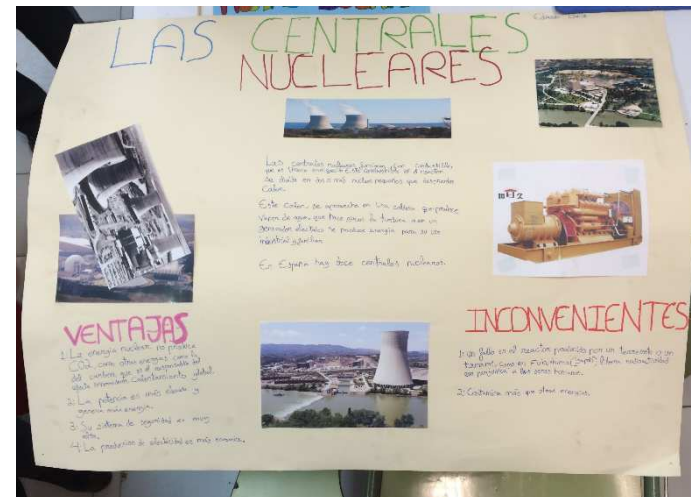 LAS CENTRALES
NUCLEARES
Las centrales nucleares funcionan con combustibles
que se llama Este combustible en el reactor
se divide en dos o más núcleos pequeños que desprenden
calor.
Este calor se aprovecha en una caldera que produce
vapor de agua que hace girar la turbina y en un
generador eléctrico se produce energía para su uso
industrial y familiar.
En España hay doce centrales nucleares.
VENTAJAS
1. La energía nuclear no produce
CO2 como otras energías como la
del carbón que es el responsable del
efecto invernadero calentamiento global.
2. La potencia es más elevada y
genera más energía.
3. Su sistema de seguridad es muy
alto.
4. La producción de electricidad es más
INCONVENIENTES
1: Un fallo en el reactor producido por un terremoto o un
tsunami, como en libera radioactividad
a los seres humanos.
2: Contamina más que otras energías.